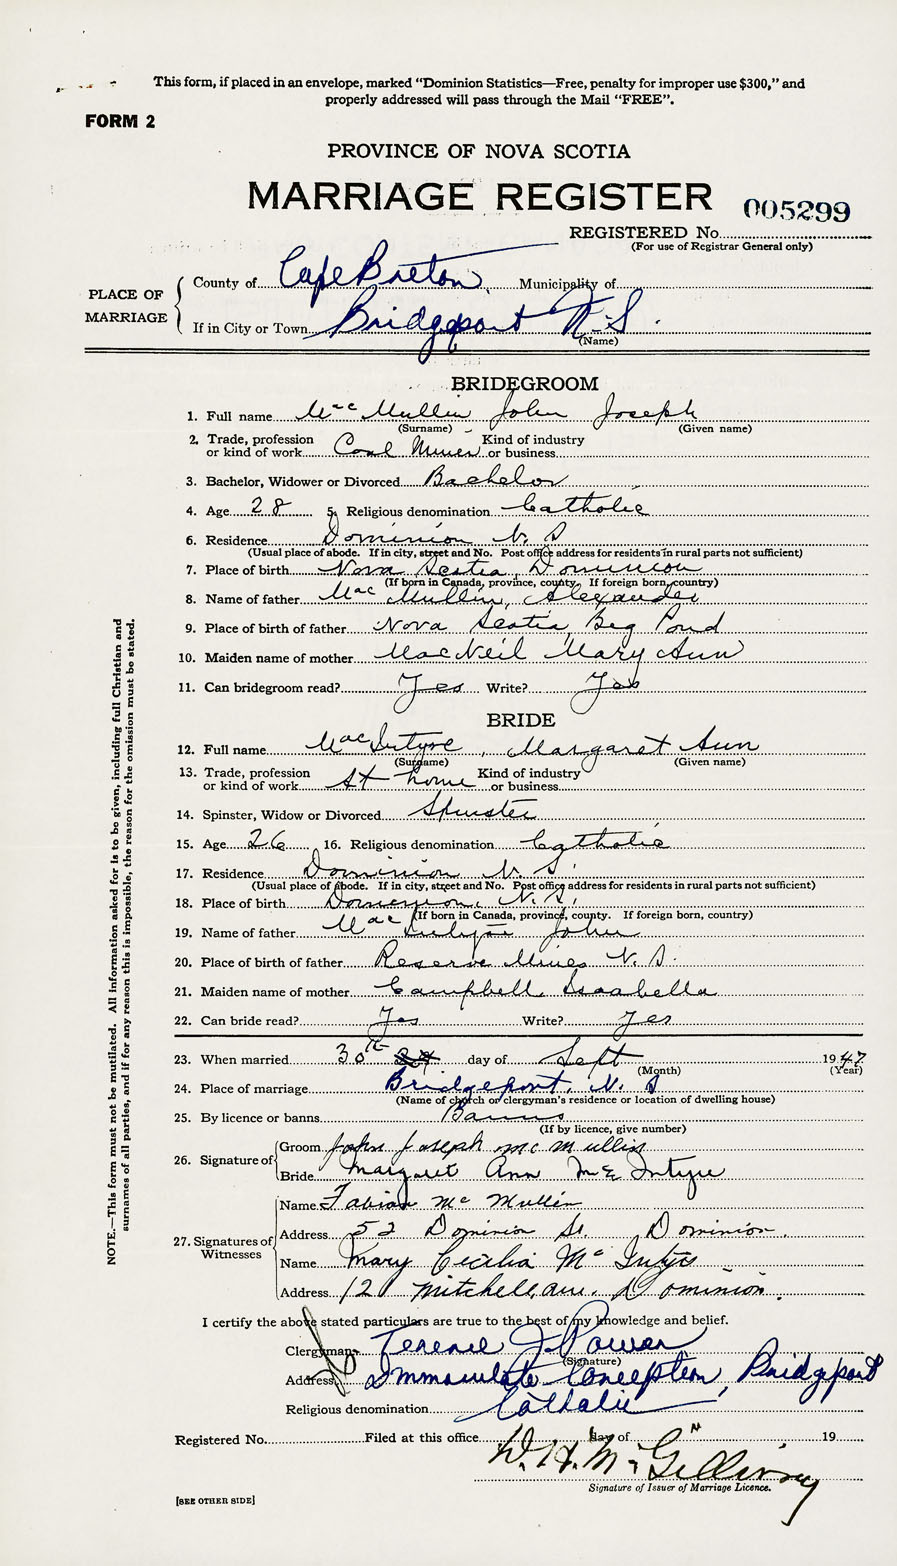 This form, if placed in an envelope, marked "Dominion Statistics—Free, penalty for improper use $300," and
properly addressed will pass through the Mail "FREE".
FORM 2
PROVINCE OF NOVA SCOTIA
MARRIAGE REGISTER
005299
REGISTERED No.
(For use of Registrar General only)
PLACE OF MARRIAGE
County of Cape Breton, Municipality of
If in City or Town Bridgeport N.S.
(Name)
BRIDEGROOM
1. Full name MacMullin John Joseph
(Surname) (Given name)
2. Trade, profession or kind of work Coal Miner Kind of industry or business
3. Bachelor, Widower or Divorced Bachelor
4. Age 28 5. Religious denomination Catholic
6. Residence Dominion N.S
(Usual place of abode. If in city, street and No. Post office address for residents in rural parts not sufficient)
7. Place of birth Nova Scotia, Dominion
(If born in Canada, province, county. If foreign born, country)
8. Name of father MacMullin, Alexander
9. Place of birth of father Nova Scotia, Beg Pond
10. Maiden name of mother MacNeil Mary Ann
11. Can bridegroom read? Yes Write? Yes
BRIDE
12. Full name MacIntyre, Margaret Ann
(Surname) (Given name)
13. Trade, profession or kind of work At home Kind of industry or business
14. Spinster, Widow or Divorced Spinster
15. Age 26 16. Religious denomination Catholic
17. Residence Dominion N.S.
(Usual place of abode. If in city, street and No. Post office address for residents in rural parts not sufficient)
18. Place of birth Dominion, N.S.
(If born in Canada, province, county. If foreign born, country)
19. Name of father MacIntyre John
20. Place of birth of father Reserve Mines N.S.
21. Maiden name of mother Campbell, Isabella
22. Can bride read? Yes Write? Yes
23. When married 30th day of Sept 1947
(Month) (Year)
24. Place of marriage Bridgeport, N.S
(Name of church or clergyman's residence or location of dwelling house)
25. By licence or banns Banns
(If by licence, give number)
26. Signature of
Groom John Joseph McMullin
Bride Margaret Ann McIntyre
27. Signatures of Witnesses
Name Fabian McMullin
Address 52 Dominion St. Dominion.
Name Mary Cecilia McIntyre
Address 12 Mitchell, ave. Dominion.
I certify the above stated particulars are true to the best of my knowledge and belief.
Clergyman Terence J. Power
(Signature)
Address Immaculate Conception, Bridgeport
Religious denomination Catholic
Registered No. Filed at this office day of 19
W. H. McGillivray
Signature of Issuer of Marriage Licence.
[SEE OTHER SIDE]
NOTE.—This form must not be mutilated. All information asked for is to be given, including full Christian and
surnames of all parties, and if for any reason this is impossible, the reason for the omission must be stated.